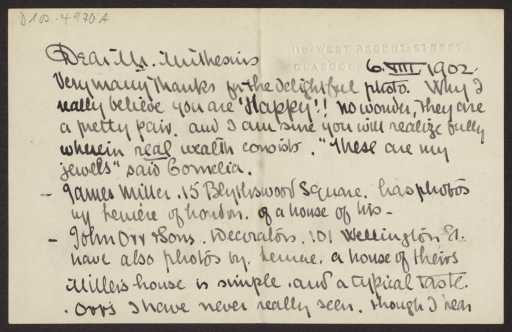 D102-4970A
116 WEST REGENT STREET
GLASGOW
Dear Mr. Muthesius
6. VIII 1902.
Very many thanks for the delightful photo. Why I
really believe you are 'Happy'!! no wonder, They are
a pretty pair. and I am sure you will realize fully
wherein real wealth consists. "These are my
jewels" said Cornelia.
- James Miller. 15 Blythswood Square. has photos
by Lemere of London. of a house of his -
- John Orr & Sons. Decorators. 101 Wellington St.
have also photos by Lemere. a house of theirs
Miller's house is simple. and a typical taste.
. Orrs I have never really seen. though I hear